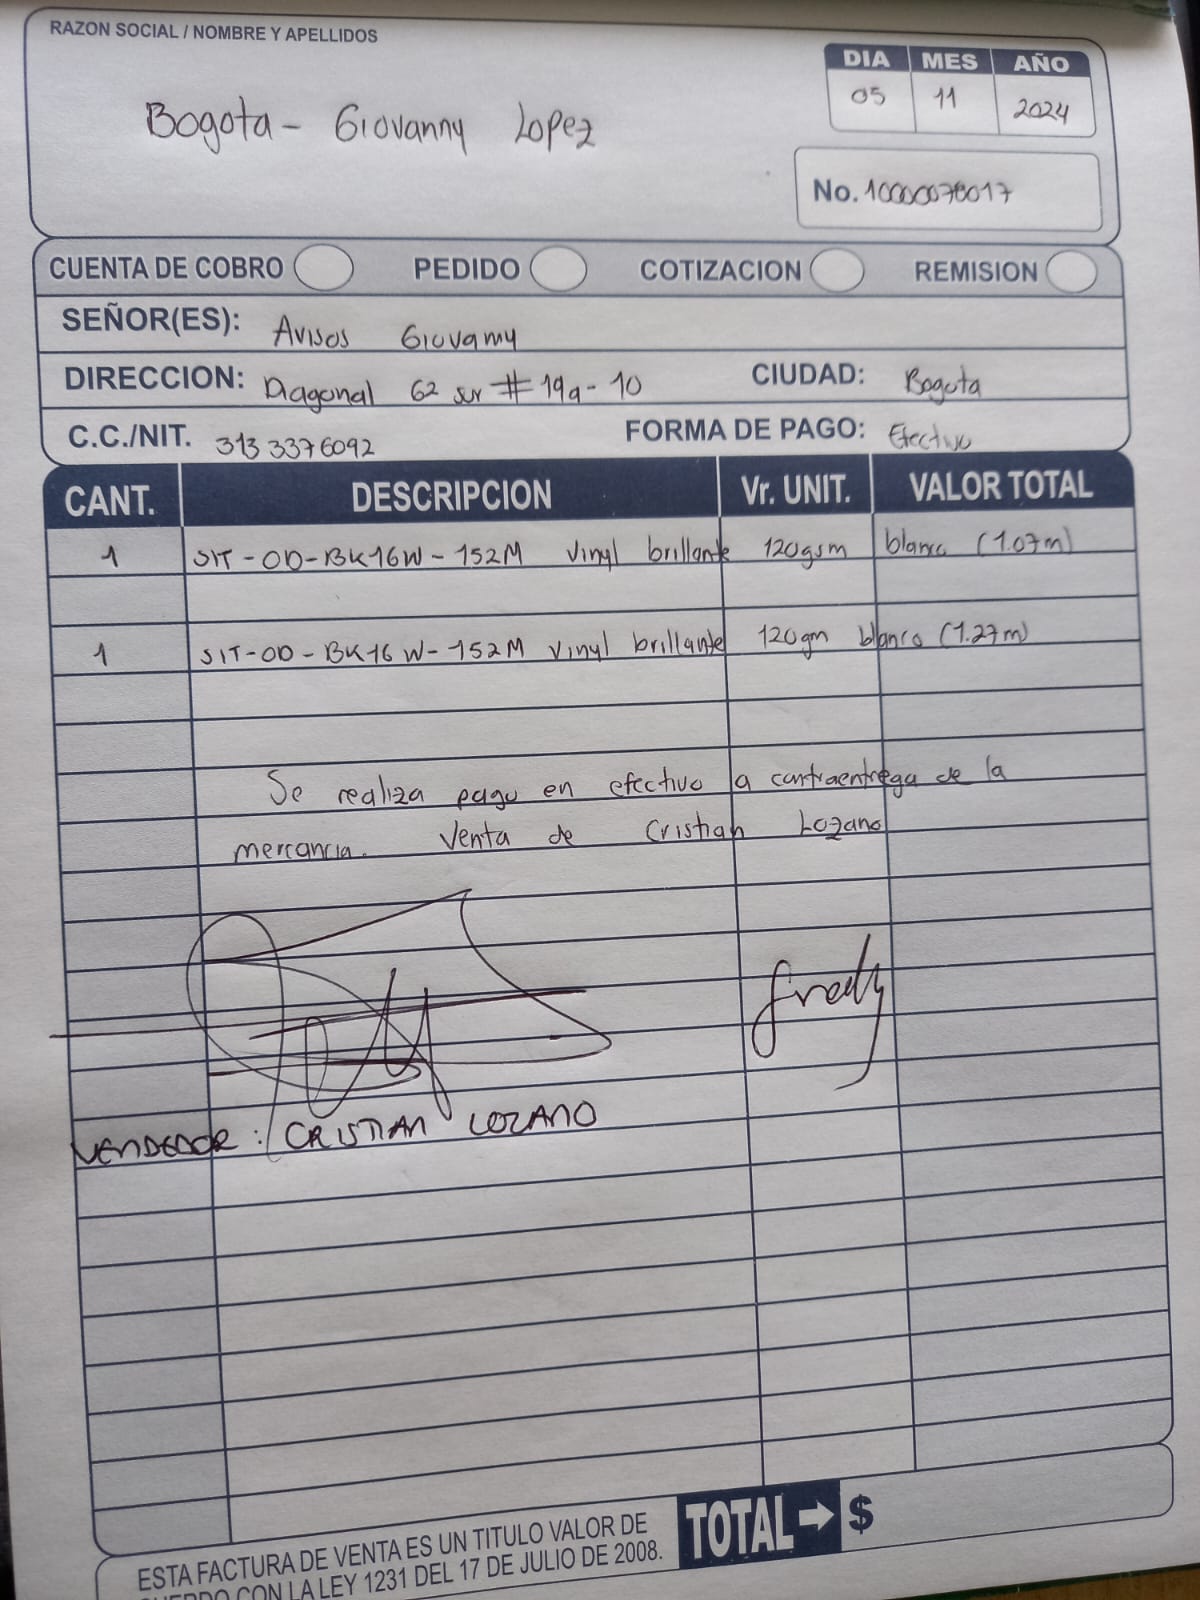 RAZON SOCIAL / NOMBRE Y APELLIDOS
DIA MES AÑO
05 11 2024
Bogota - Giovanny Lopez
No. 10000078017
CUENTA DE COBRO PEDIDO COTIZACION REMISION
SEÑOR(ES): Avisos Giovanny
DIRECCION: Diagonal 62 sur # 19a - 10 CIUDAD: Bogota
C.C./NIT. 313 3376092 FORMA DE PAGO: Efectivo
CANT. DESCRIPCION Vr. UNIT. VALOR TOTAL
1 SIT-OD-BK16W-152M Vinyl brillante 120gsm blanco (1.07m)
1 SIT-OD-BK16W-152M Vinyl brillante 120gm blanco (1.27m)
Se realiza pago en efectivo a contraentrega de la
mercancia. Venta de Cristian Lozano
Fredy
VENDEDOR: CRISTIAN LOZANO
TOTAL → $
ESTA FACTURA DE VENTA ES UN TITULO VALOR DE
CON LA LEY 1231 DEL 17 DE JULIO DE 2008.